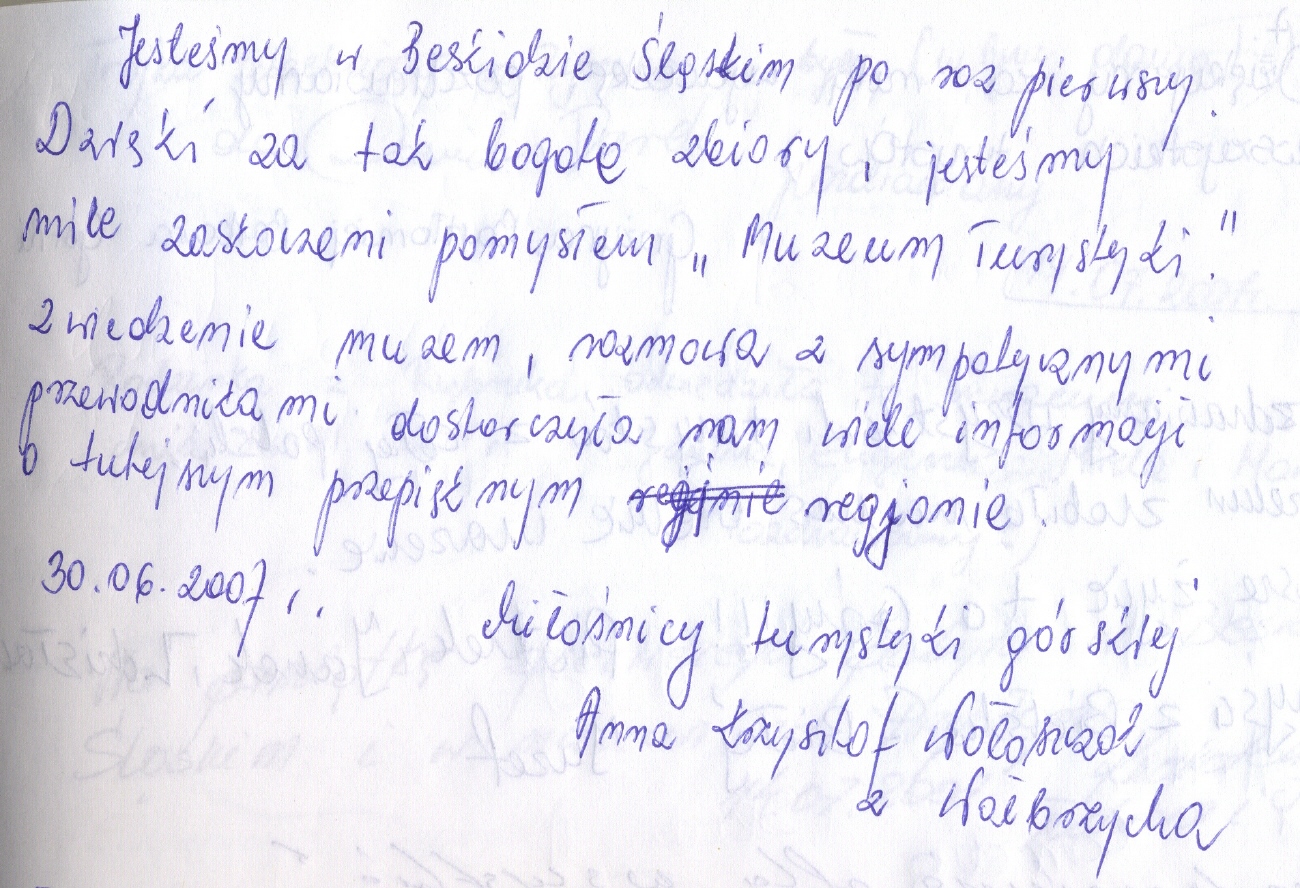 Jesteśmy w Beskidzie Śląskim po raz pierwszy.
Dzięki za tak bogate zbiory, jesteśmy
mile zaskoczeni pomysłem „Muzeum Turystyki".
Zwiedzenie muzem, rozmowa z sympatycznymi
przewodnikami dostarczyła nam wiele informacji
o tutejszym przepięknym regjnie regjonie.
30.06.2007,..
Miłośnicy turystyki górskiej
Anna Krzysztof Wołoszczak
z Wałbrzycha